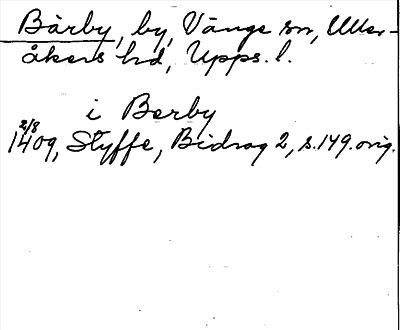 Bärby, by, Vänge sn, Uller-
åkers hd, Upps. l.
i Berby
2/8
1409, Styffe, Bidrag 2, s. 149. orig.